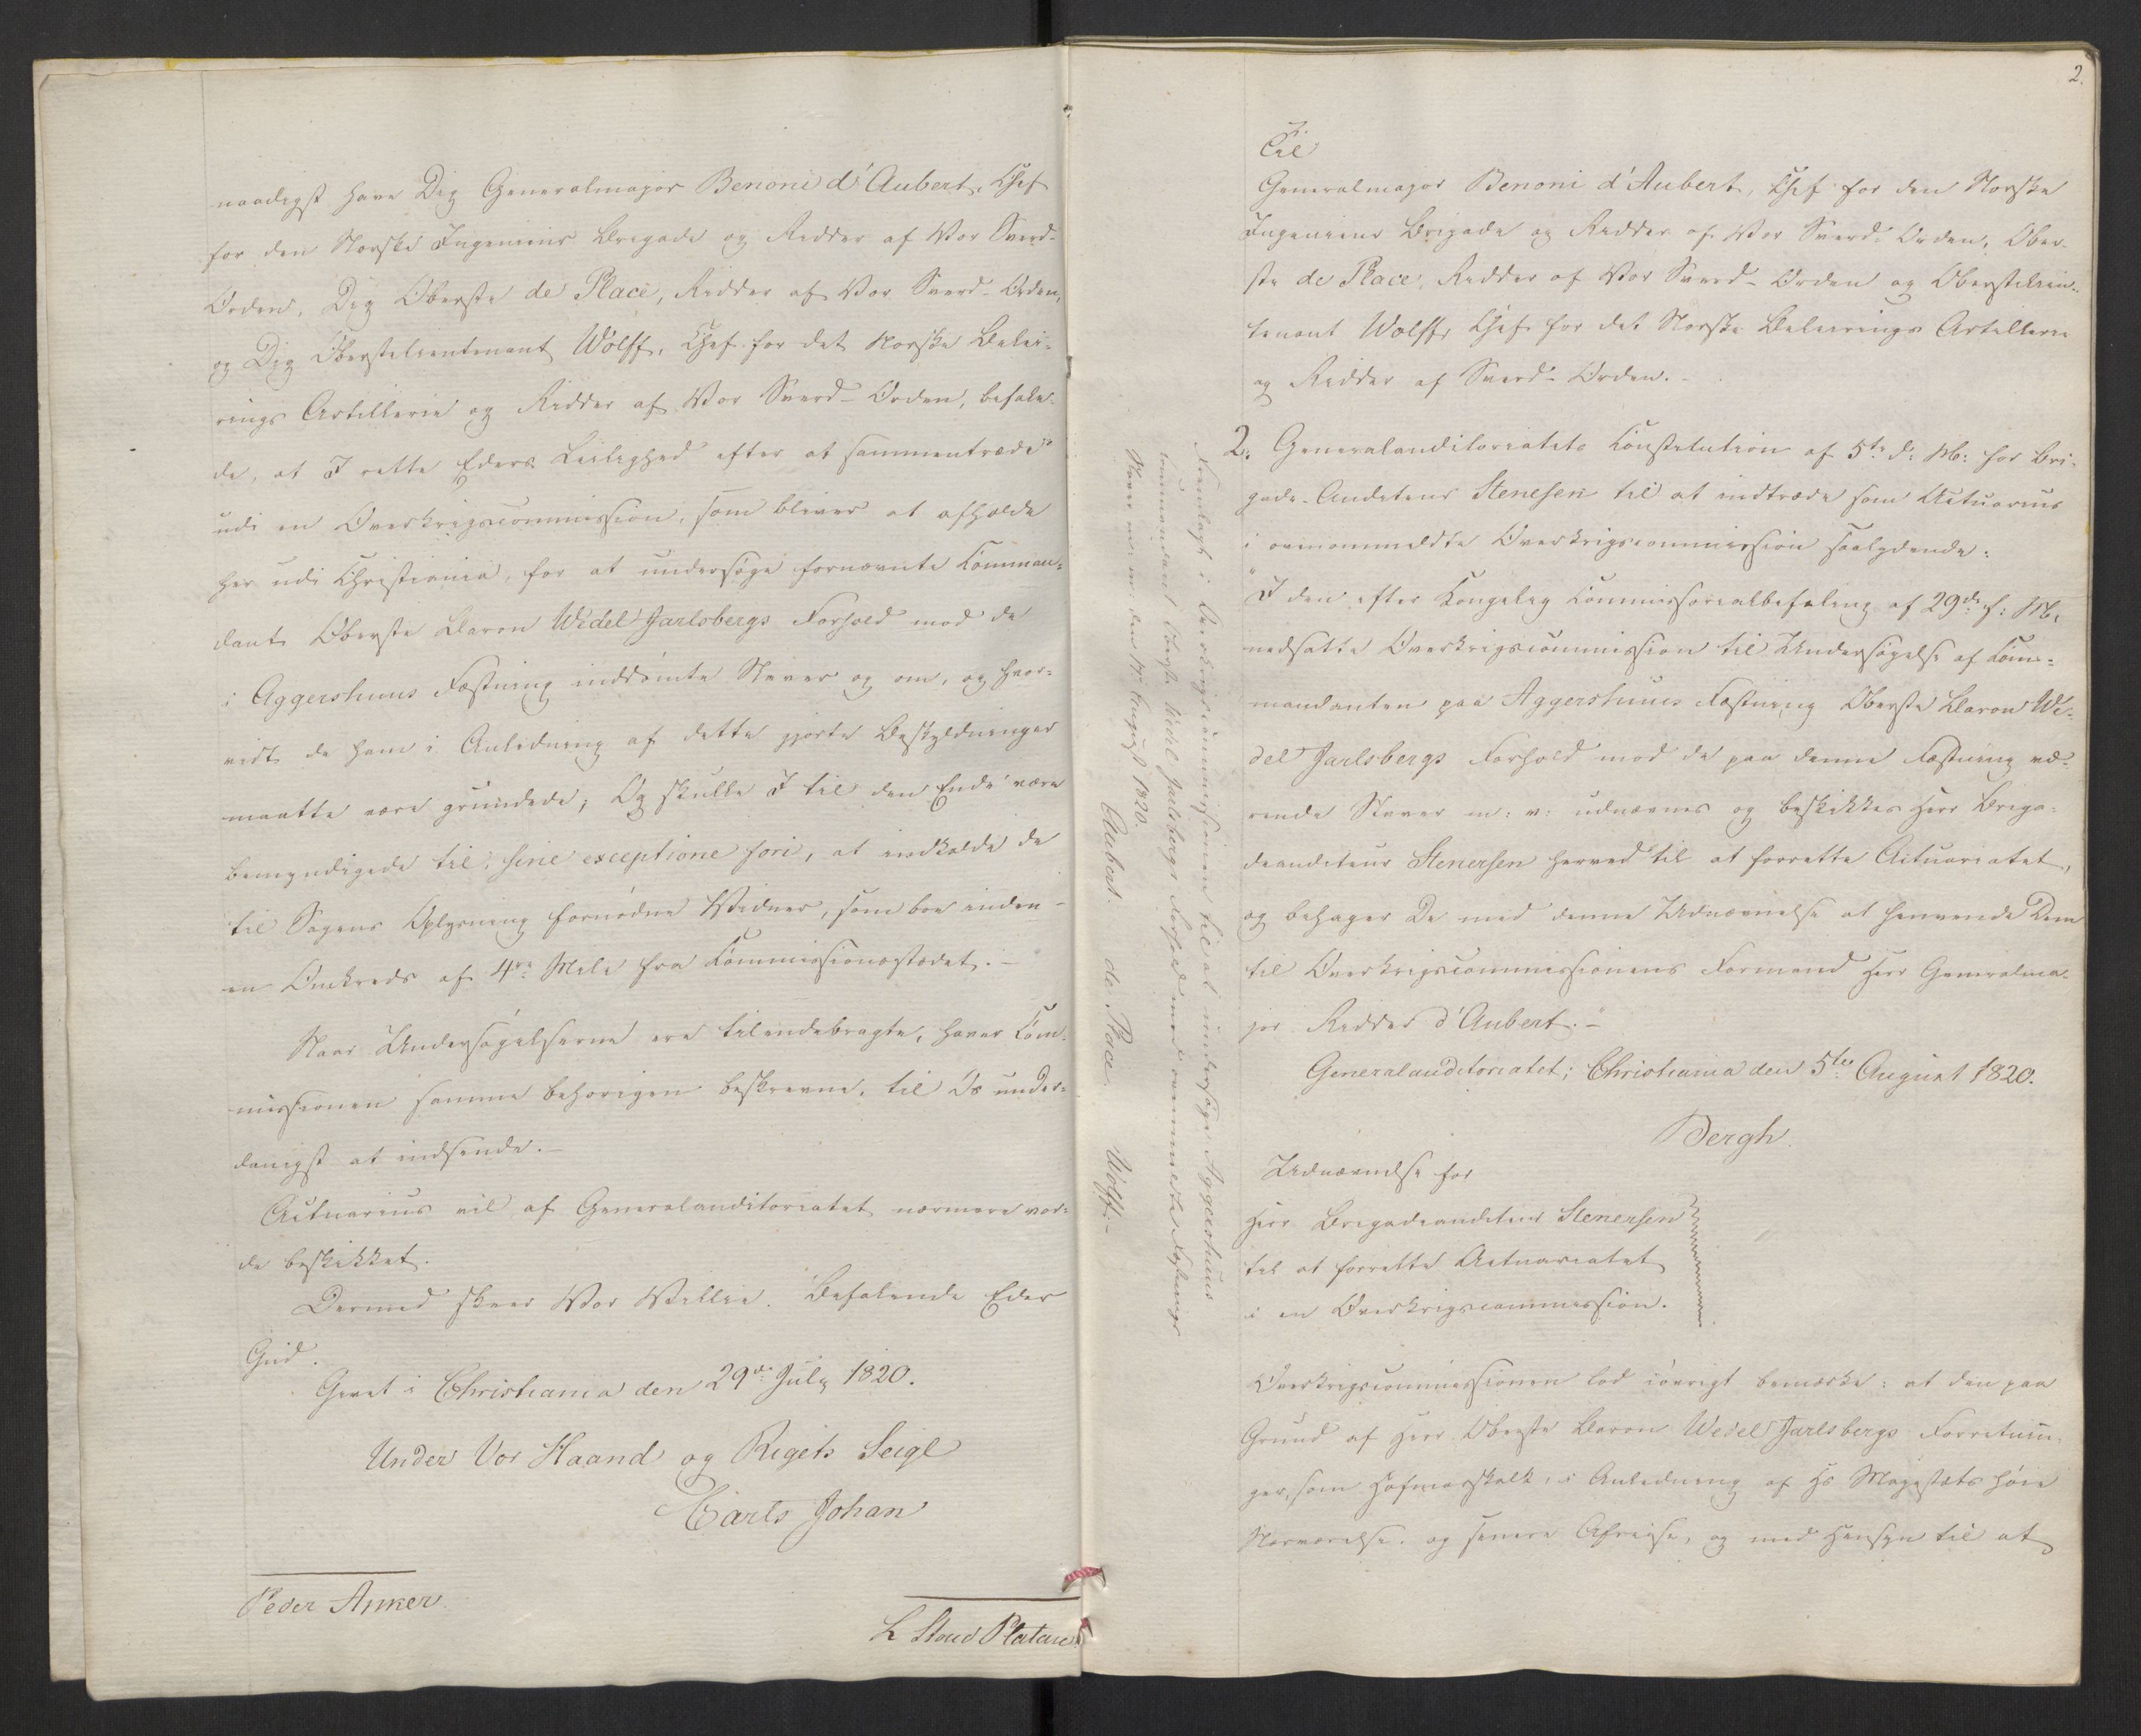 naadigst have Dig Generalmajor Benoni d'Aubert, Chef
for den Norske Ingenieur Brigade og Ridder af Vor Sverd-
Orden, Dig Oberste de Place, Ridder af Vor Sverd-Orden,
og Dig Oberstelieutenant Wolff, Chef for det Norske Belei-
rings Artillerie og Ridder af Vor Sverd-Orden, befalen-
de, at I rette Eders Leilighed efter at sammentræde
udi en Overkrigscommission, som bliver at afholde
her udi Christiania, for at undersøge fornævnte Komman-
dant Oberste Baron Wedel Jarlsbergs Forhold mod de
i Aggershuus Fæstning inddømte Slaver og om, og hvor-
vidt de ham i Anledning af dette gjorte Beskyldninger
maatte være grundede; Og skulle I til den Ende være
bemyndigede til, sine exceptione fori, at indkalde de
til Sagens Oplysning fornødne Vidner, som boe inden
en Omkreds af 4re Mile fra Kommissionsstædet.-
Naar Undersøgelserne ere tilendebragte, haver Com-
missionen samme behørigen beskrevne, til Os under-
danigst at indsende.-
Actuarius vil af Generalauditoriatet nærmere vor-
de beskikket.
Dermed skeer Vor Villie. Befalende Eder
Gud.
Givet i Christiania den 29de July 1820.
Under Vor Haand og Rigets Seigl
Carl Johan
Peder Anker
L Stoud Platou
2.
Til
Generalmajor Benoni d'Aubert, Chef for den Norske
Ingenieur Brigade og Ridder af Vor Sverd-Orden, Ober-
ste de Place, Ridder af Vor Sverd-Orden og Oberstelieu-
tenant Wolff, Chef for det Norske Beleirings Artillerie
og Ridder af Sverd-Orden.-
2. Generalauditoriatets Constitution af 5te d: M: for Bri-
gade-Auditeur Stenersen til at indtræde som Actuarius
i ovenommeldte Overkrigscommission saalydende:
"I den efter Kongelig Commissorialbefaling af 29de f: M:
nedsatte Overkrigscommission til Undersøgelse af Com-
mandanten paa Aggershuus Fæstning Oberste Baron We-
del Jarlsbergs Forhold mod de paa denne Fæstning væ-
rende Slaver m: v: udnævnes og beskikkes Herr Briga-
deauditeur Stenersen herved til at forrette Actuariatet,
og behager De med denne Udnævnelse at henvende Dem
til Overkrigscommissionens Formand Herr Generalma-
jor Ridder d'Aubert.-"
Generalauditoriatet; Christiania den 5te August 1820.
Bergh.
Udnævnelse for
Herr Brigadeauditeur Stenersen
til at forrette Actuariatet
i en Overkrigscommission.
Overkrigscommissionen lod iøvrigt bemærke: at den paa
Grund af Herr Oberste Baron Wedel Jarlsbergs Forretnin-
ger, som Hofmarskalk, i Anledning af Hs Majestæts høie
Nærværelse, og senere Afreise, og med Hensyn til at
Fremlagt i Overkrigscommissionen til at undersøge Aggershuus
commandant Oberste Wedel Jarlsbergs Forhold mod ovennævnte Fæstnings
Slaver m: v: den 17de August 1820.
Aubert. de Place. Wolff.-